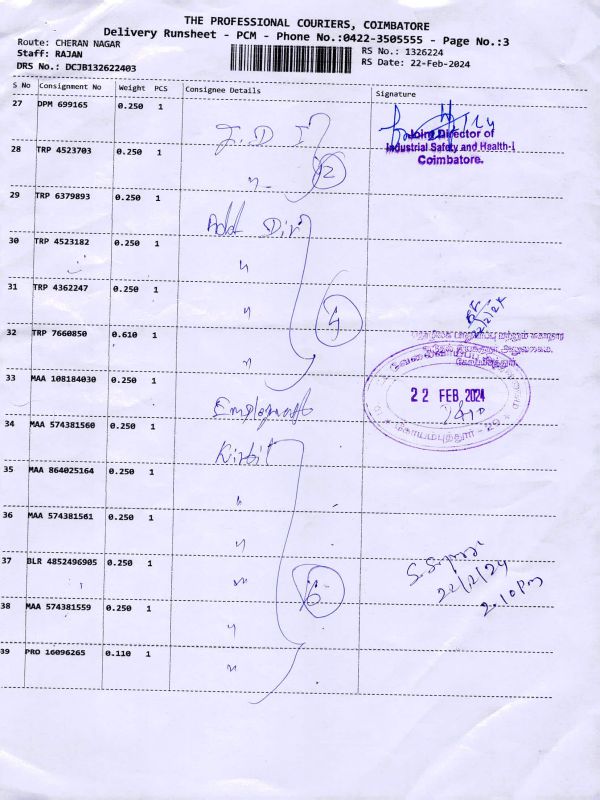 THE PROFESSIONAL COURIERS, COIMBATORE
Delivery Runsheet - PCM - Phone No.:0422-3505555 - Page No.:3
Route: CHERAN NAGAR
Staff: RAJAN
DRS No.: DCJB132622403
RS No.: 1326224
RS Date: 22-Feb-2024
S No Consignment No Weight PCS Consignee Details Signature
27 DPM 699165 0.250 1
Joint Director of
Industrial Safety and Health-I
Coimbatore.
28 TRP 4523703 0.250 1 " 2
29 TRP 6379893 0.250 1 Addl Dir
30 TRP 4523182 0.250 1 "
31 TRP 4362247 0.250 1 " 4
32 TRP 7660850 0.610 1 "
33 MAA 108184030 0.250 1 Employment
22 FEB 2024
34 MAA 574381560 0.250 1
35 MAA 864025164 0.250 1 "
36 MAA 574381561 0.250 1 "
37 BLR 4852496905 0.250 1 " 6
22/2/24
2.10pm
38 MAA 574381559 0.250 1 "
39 PRO 16096265 0.110 1 "